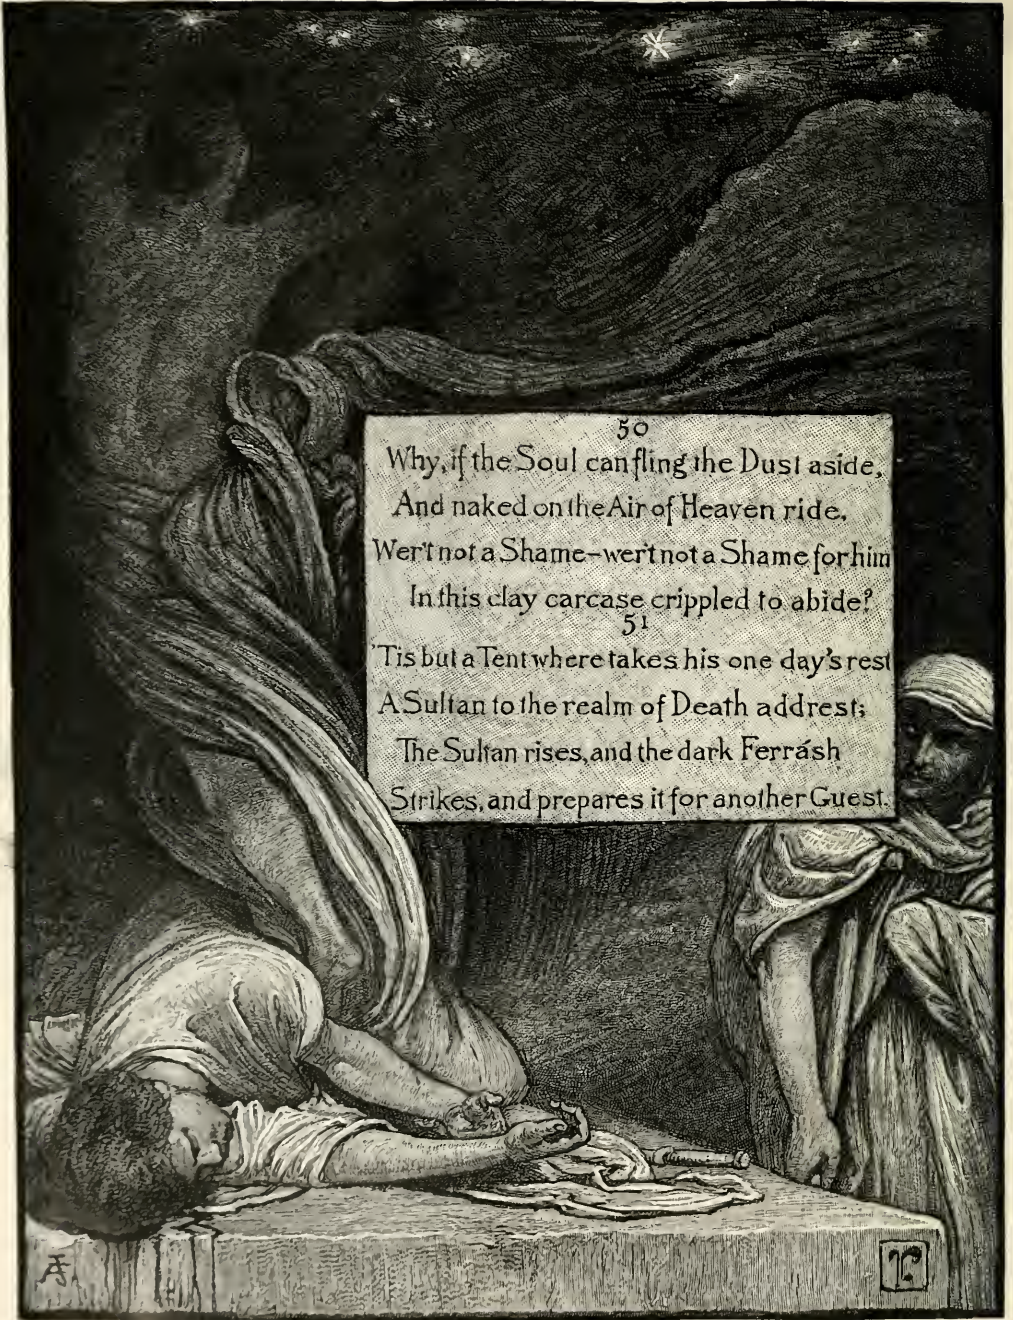 50
Why, if the Soul can fling the Dust aside,
And naked on the Air of Heaven ride,
Wer't not a Shame–wer't not a Shame for him
In this clay carcase crippled to abide?
51
'Tis but a Tent where takes his one day's rest
A Sultan to the realm of Death addrest;
The Sultan rises, and the dark Ferrásh
Strikes, and prepares it for another Guest.